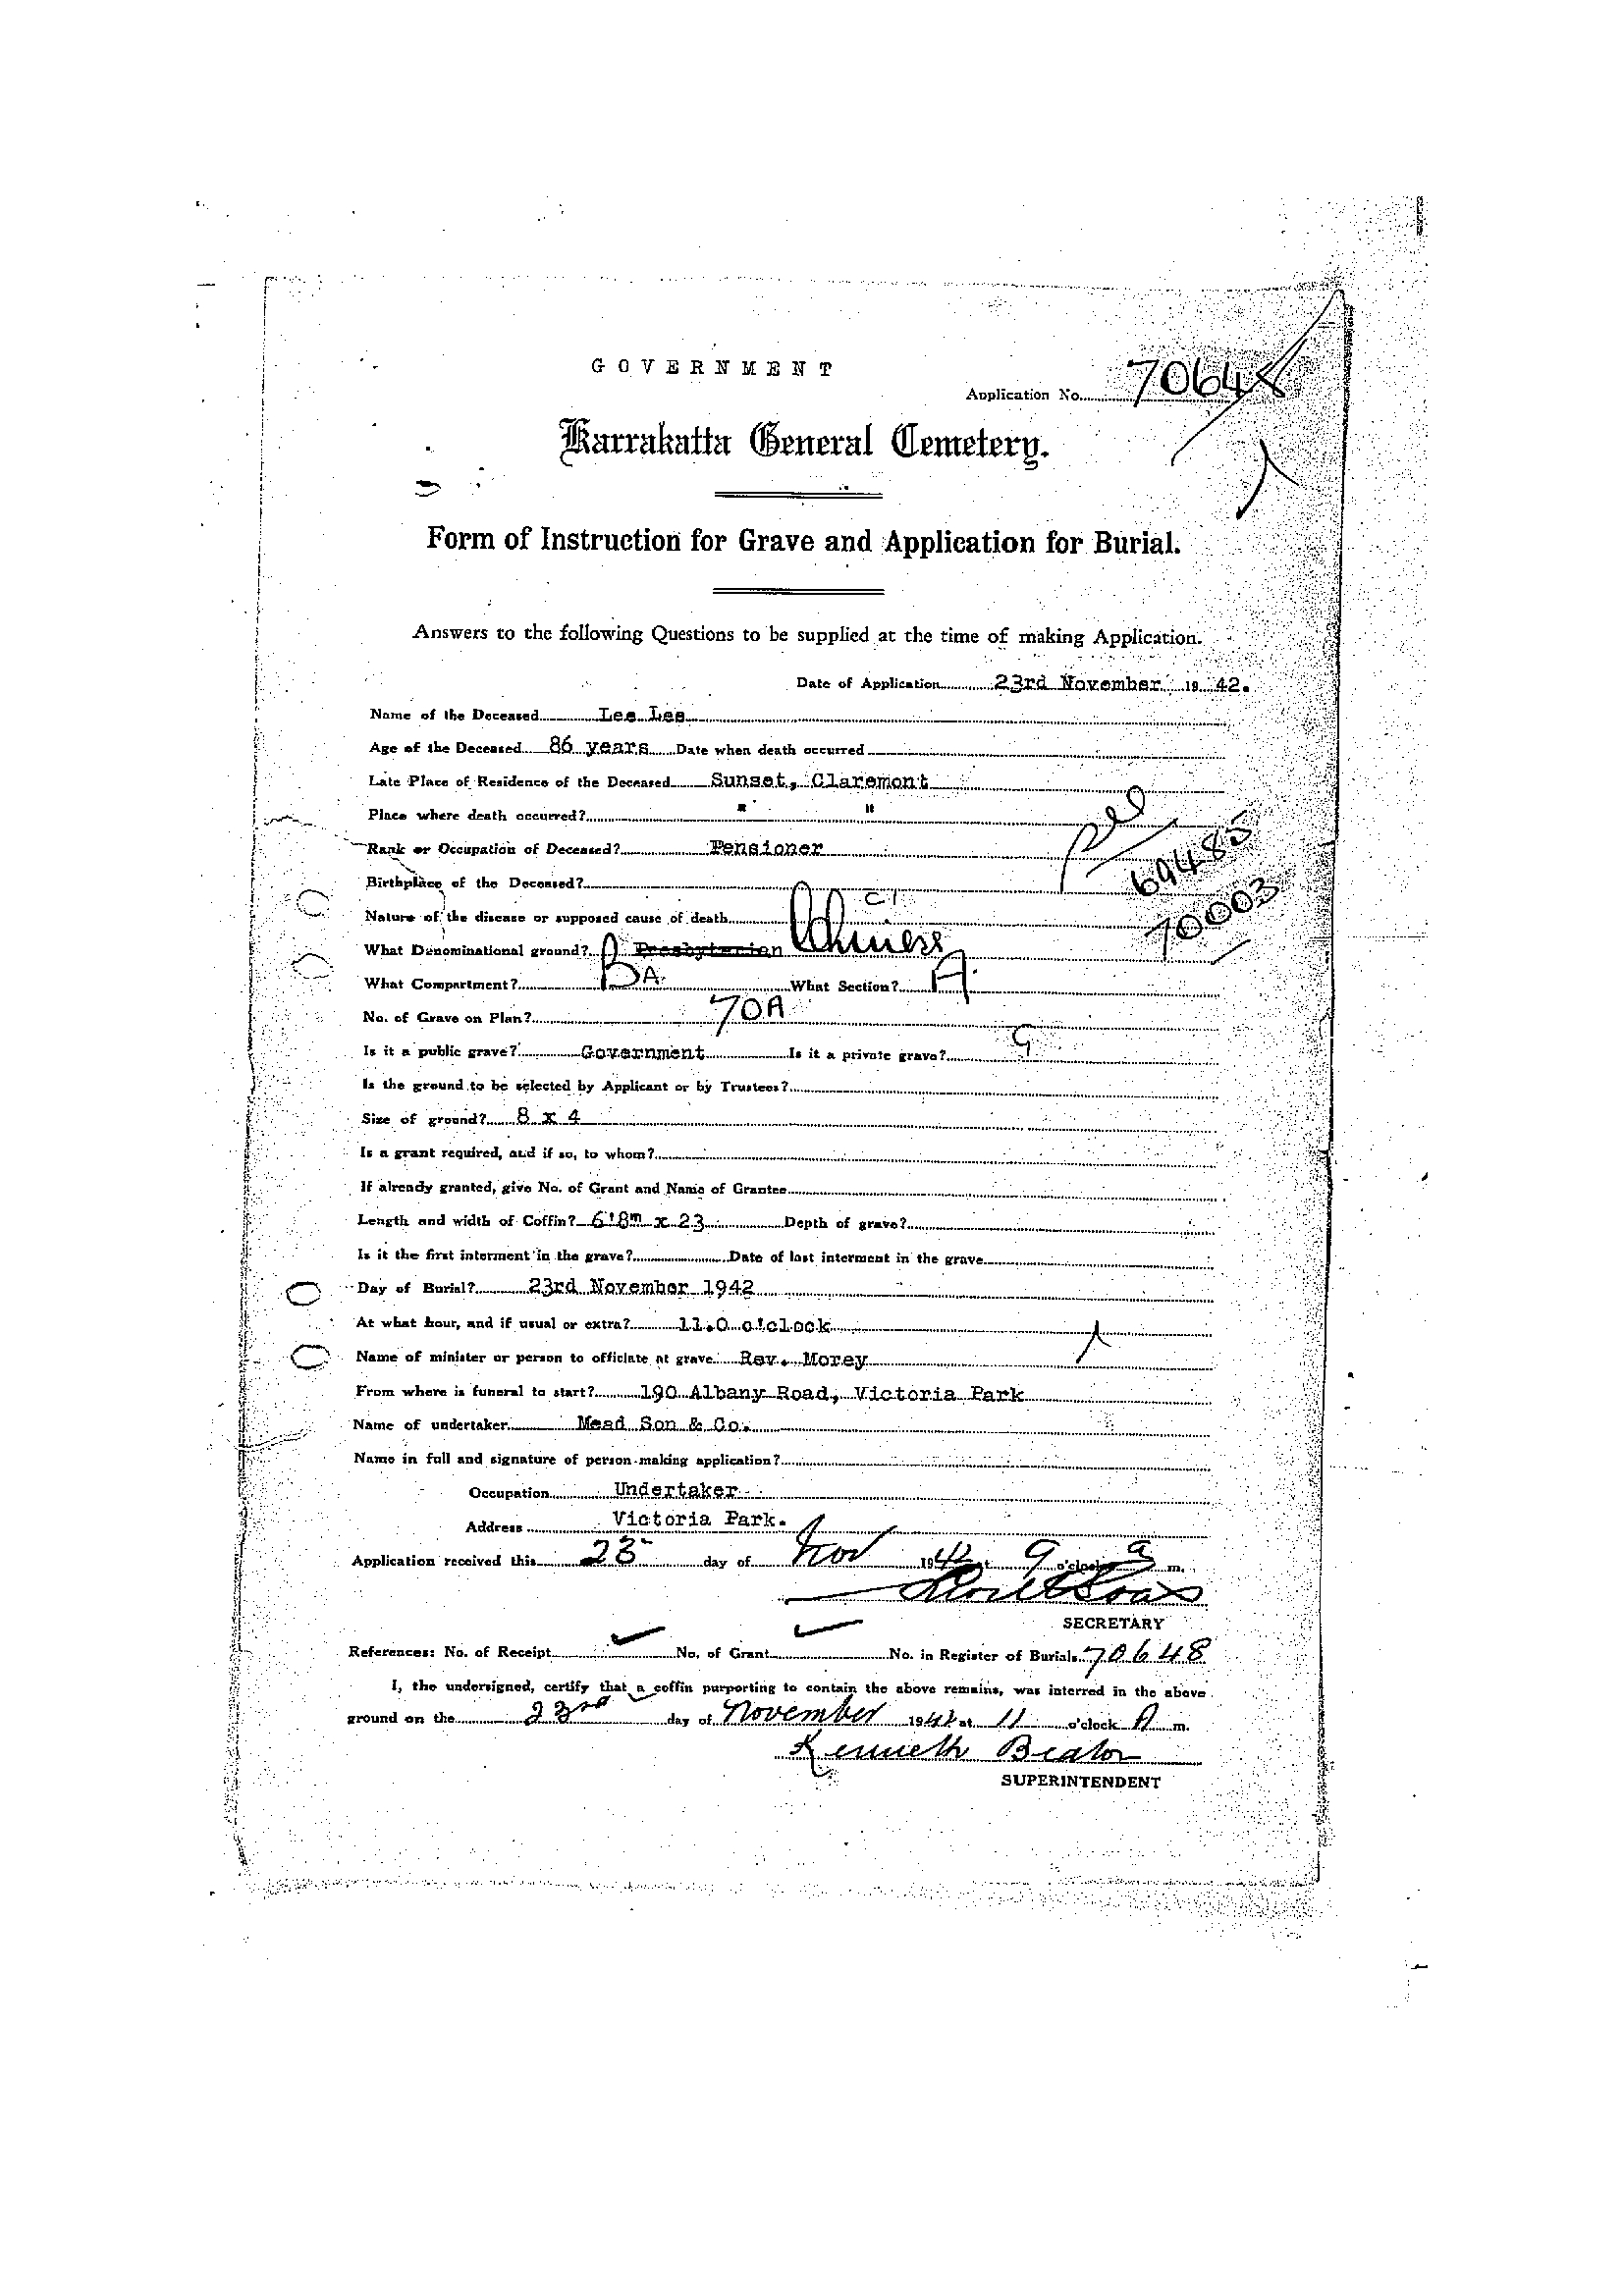 GOVERNMENT
Application No. 70648
Karrakatta General Cemetery.
Form of Instruction for Grave and Application for Burial.
Answers to the following Questions to be supplied at the time of making Application.
Date of Application 23rd November 19 42.
Name of the Deceased Lee Lee
Age of the Deceased 86 years Date when death occurred
Late Place of Residence of the Deceased Sunset, Claremont
Place where death occurred? " "
Rank or Occupation of Deceased? Pensioner
69485
Birthplace of the Deceased?
70003
Nature of the disease or supposed cause of death
What Denominational ground? Presbyterian Chinese
What Compartment? BA What Section? A
No. of Grave on Plan? 70A
Is it a public grave? Government Is it a private grave? G
Is the ground to be selected by Applicant or by Trustees?
Size of ground? 8 x 4
Is a grant required, and if so, to whom?
If already granted, give No. of Grant and Name of Grantee
Length and width of Coffin? 6'8" x 23 Depth of grave?
Is it the first interment in the grave? Date of last interment in the grave
Day of Burial? 23rd November 1942
At what hour, and if usual or extra? 11.0 o'clock
Name of minister or person to officiate at grave Rev. Morey
From where is funeral to start? 190 Albany Road, Victoria Park
Name of undertaker Mead Son & Co.
Name in full and signature of person making application?
Occupation Undertaker
Address Victoria Park.
Application received this 23 day of Nov 1942 at 9 o'clock a m.
SECRETARY
References: No. of Receipt No. of Grant No. in Register of Burials 70648
I, the undersigned, certify that a coffin purporting to contain the above remains, was interred in the above
ground on the 23rd day of November 1942 at 11 o'clock A m.
Kenneth Beaton
SUPERINTENDENT